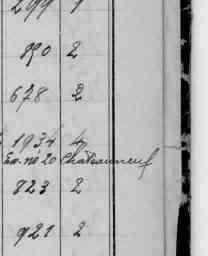 299 1
890 2
678 2
1934 4
Ex. no 20 Châteauneuf
823 2
921 2